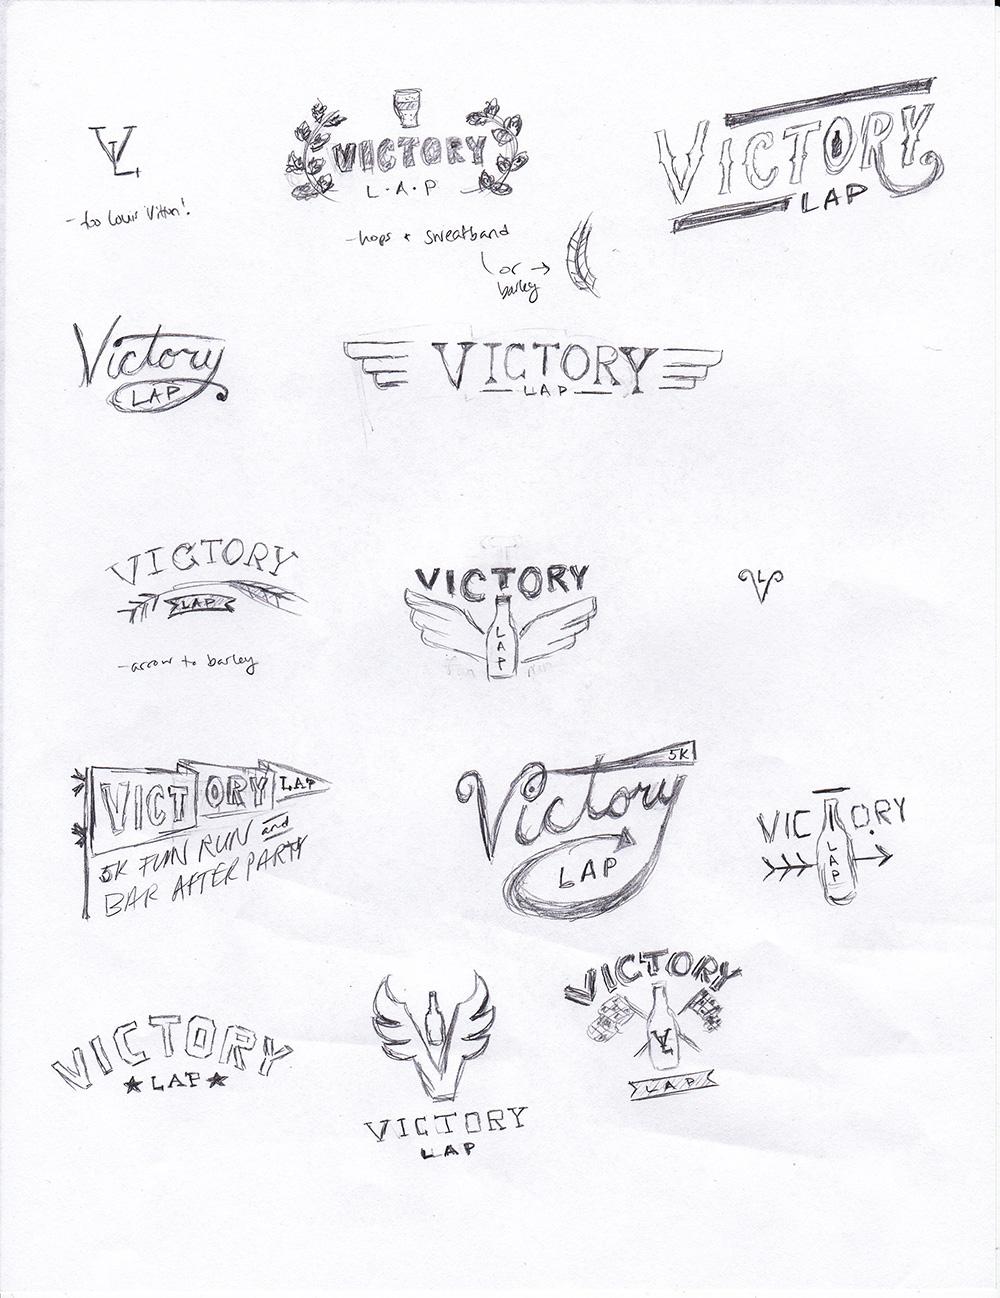 VL
- too Louis Vitton!
VICTORY
L·A·P
- hops + sweatband
or →
barley
VICTORY
LAP
Victory
LAP
VICTORY
LAP
VICTORY
LAP
- arrow to barley
VICTORY
LAP
VL
VICTORY LAP
5K FUN RUN and
BAR AFTER PARTY
5K
Victory
LAP
VICTORY
LAP
VICTORY
★ LAP ★
V
VICTORY
LAP
VICTORY
VL
LAP